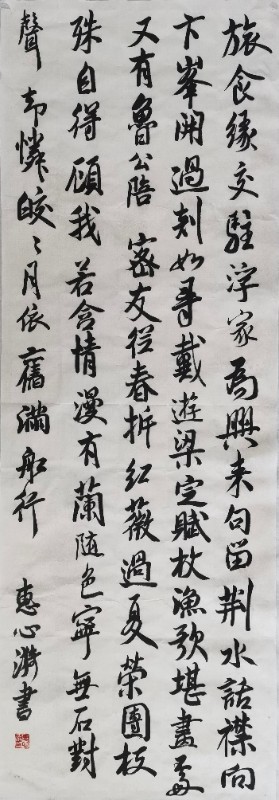 旅食緣交駐浮家為興来句留荆水話襟向
卞峯開過剡如尋戴遊梁定賦枚漁歌堪畫處
又有魯公陪 密友從春拆紅薇過夏榮團枝
殊自得顧我若含情漫有蘭随色寧無石對
聲却憐皎々月依舊滿船行 惠心書